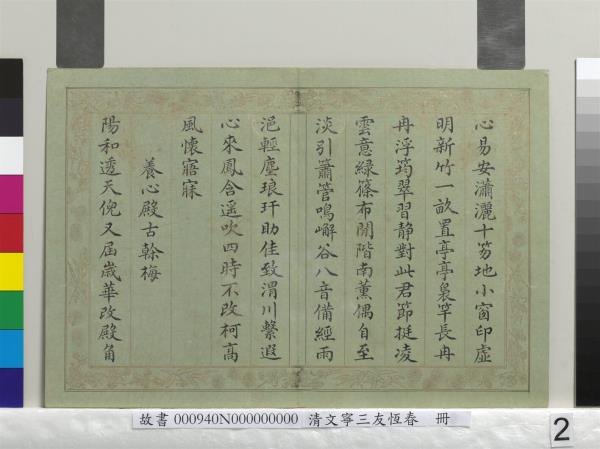 心易安瀟灑十笏地小窗印虛
明新竹一畝置亭亭裊竿長冉
冉浮筠翠習靜對此君節挺凌
雲意綠篠布閒階南薰偶自至
淡引簫管鳴嶰谷八音備經雨
浥輕塵琅玕助佳致渭川繫遐
心來鳳含遥吹四時不改柯高
風懷寤寐
養心殿古榦梅
陽和透天倪又屆歲華改殿角
故書 000940N000000000 清文寧三友恆春 冊
2